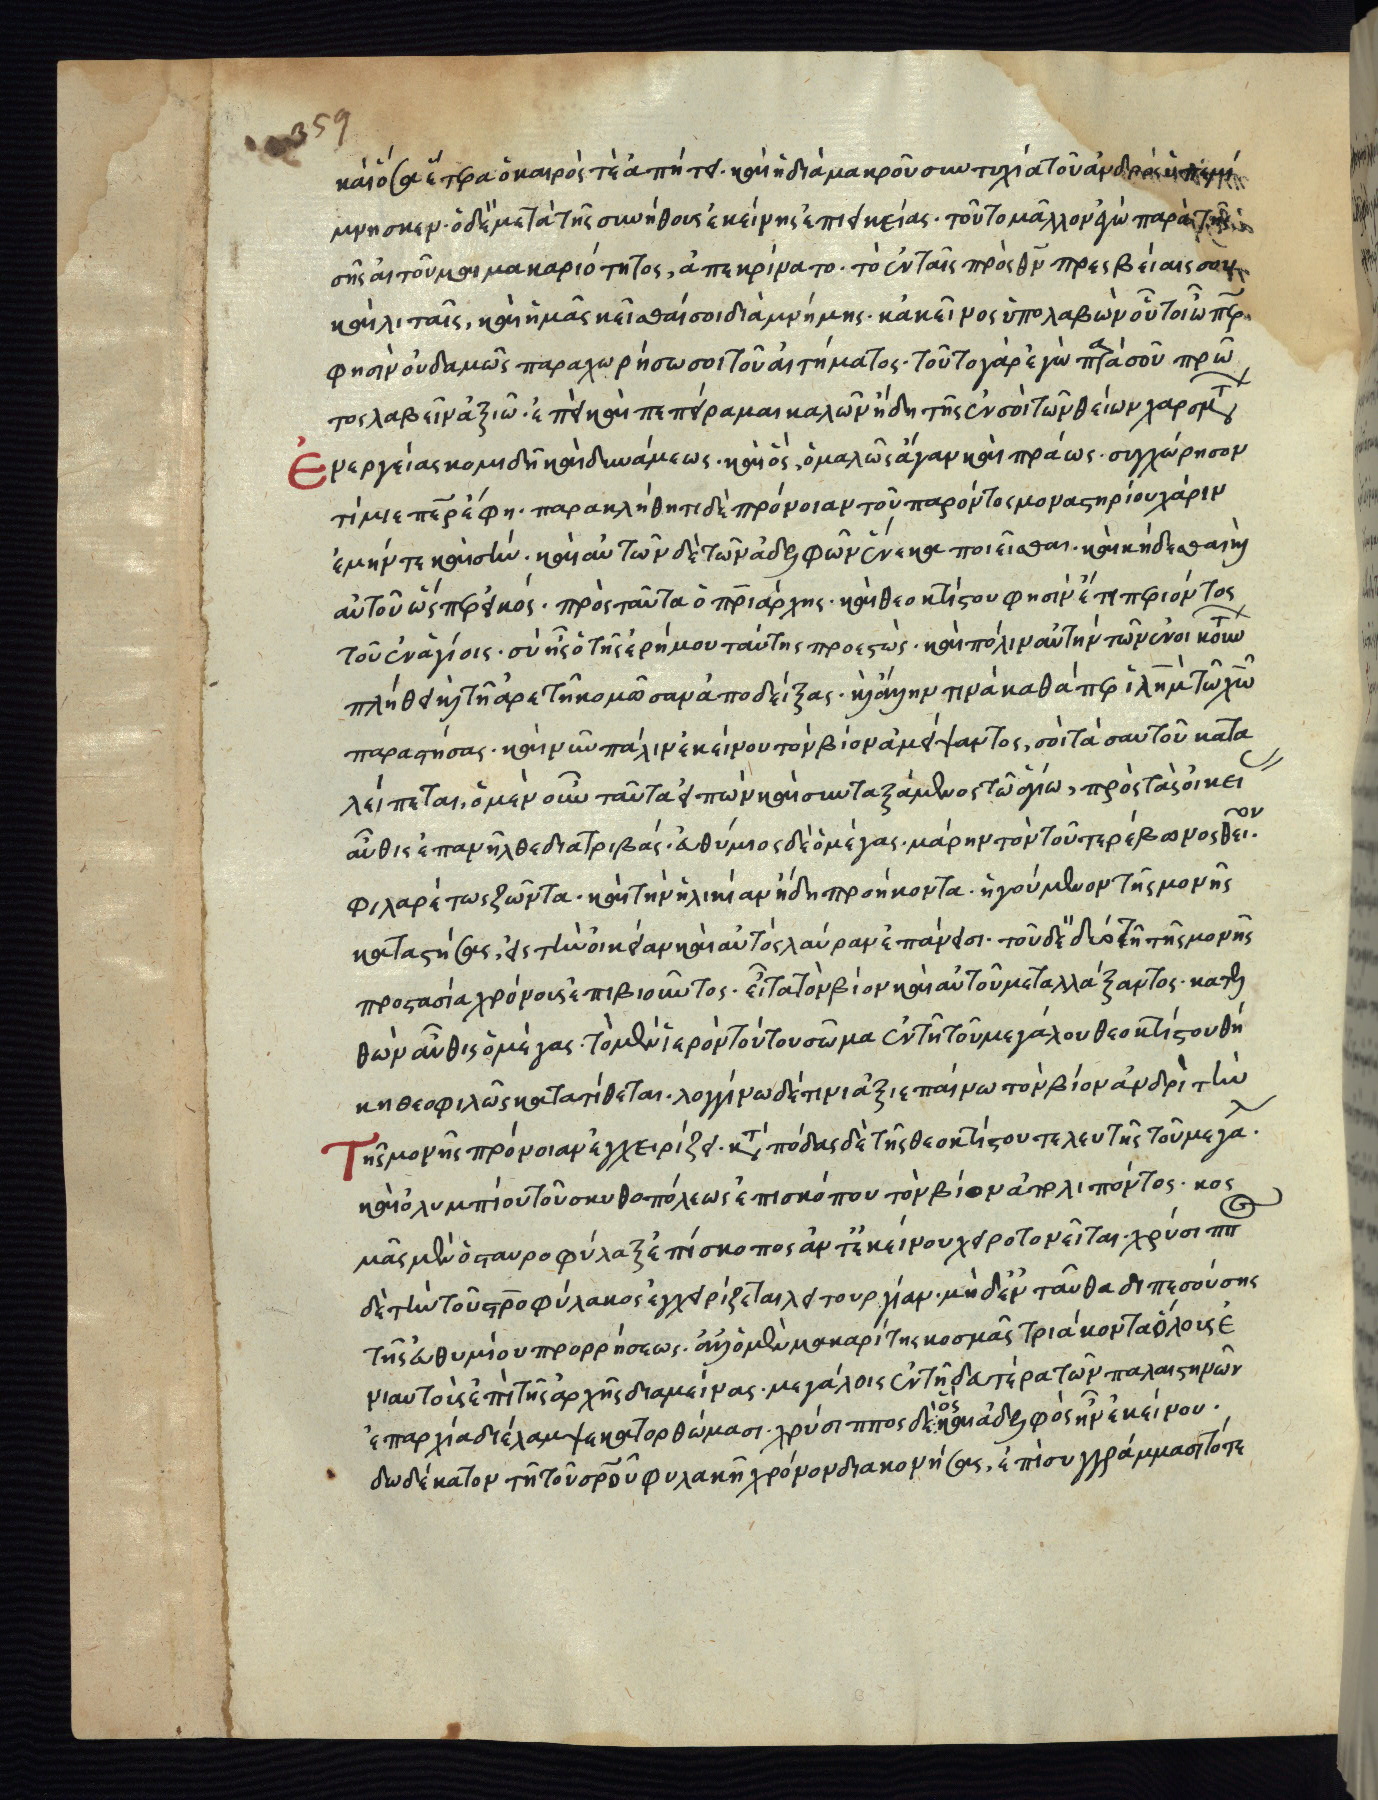 359
καὶ ὅσα ἕτερα ὁ καιρὸς τὲ ἀπῄτει· καὶ ἡ διὰ μακροῦ συντυχία τοῦ ἀνδρὸς ὑπεμί
μνησκεν· ὁ δὲ μετὰ τῆς συνήθους ἐκείνης ἐπιεικείας· τοῦτο μᾶλλον ἐγὼ παρὰ τῆς
σῆς αἰτοῦμαι μακαριότητος, ἀπεκρίνατο· τὸ ἐν ταῖς πρὸς θν πρεσβείαις σου
καὶ λιταῖς, καὶ ἡμᾶς κεῖσθαί σοι διὰ μνήμης· κἀκεῖνος ὑπολαβὼν οὔτοι ὦ περ
φησὶν οὐδαμῶς παραχωρήσω σοι τοῦ αἰτήματος· τοῦτο γὰρ ἐγὼ πα σοῦ πρῶ
τος λαβεῖν ἀξιῶ· ἐπεὶ καὶ πεπείραμαι καλῶν ἤδη τῆς ἐν σοὶ τῶν θείων χαρισμτ
Ἐνεργείας κομιδῆ καὶ δυνάμεως· καὶ ὅς, ὁμαλῶς ἄγαν καὶ πράως· συγχώρησον
τίμιε περ ἔφη· παρακλήθητι δὲ πρόνοιαν τοῦ παρόντος μοναστηρίου χάριν
ἐμήν τε καὶ σὴν· καὶ αὐτῶν δὲ τῶν ἀδελφῶν ἕνεκα ποιεῖσθαι· καὶ κήδεσθαι
αὐτοῦ ὥσπερ εἰκός· πρὸς ταῦτα ὁ πριάρχης· καὶ θεοκτίστου φησὶν ἔτι περιόντος
τοῦ ἐν ἁγίοις· σὺ ἦς ὁ τῆς ἐρήμου ταύτης προεστώς· καὶ πόλιν αὐτὴν τῶν ἐνοικοτω
πλήθει καὶ τῆ ἀρετῆ κομῶσαν ἀποδείξας· καὶ ἄλλην τινὰ καθάπερ ἱλημ τῶ χῶ
παραστήσας· καὶ νῦν πάλιν ἐκείνου τὸν βίον ἀμείψαντος, σοὶ τὰ σαυτοῦ κατα
λείπεται, ὁ μὲν οὖν ταῦτα εἰπὼν καὶ συνταξάμενος τῶ ἁγίω, πρὸς τὰς οἰκεί
αὖθις ἐπανῆλθε διατριβάς· εὐθύμιος δὲ ὁ μέγας· μάρην τὸν τοῦ τερέβωνος θεῖον·
φιλαρέτως ζῶντα· καὶ τὴν ἡλικίαν ἤδη προήκοντα· ἡγούμενον τῆς μονῆς
καταστήσας, εἰς τὴν οἰκείαν καὶ αὐτὸς λαύραν ἐπάνεισι· τοῦ δὲ διετῆ τῆς μονῆς
προστασία χρόνους ἐπιβιοῦντος· εἶτα τὸν βίον καὶ αὐτοῦ μεταλλάξαντος· κατελ
θὼν αὖθις ὁ μέγας· τὸ μὲν ἱερὸν τούτου σῶμα ἐν τῆ τοῦ μεγάλου θεοκτίστου θή
κη θεοφιλῶς κατατίθεται· λογγίνω δέ τινι ἀξιεπαίνω τὸν βίον ἀνδρὶ τὴν
Τῆς μονῆς πρόνοιαν ἐγχειρίζει· κατ πόδας δὲ τῆς θεοκτίστου τελευτῆς τοῦ μεγαλ·
καὶ ὀλυμπίου τοῦ σκυθοπόλεως ἐπισκόπου τὸν βίον ἀπολιπόντος· κοσ
μᾶς μὲν ὁ σταυροφύλαξ ἐπίσκοπος ἀντ' ἐκείνου χειροτονεῖται· χρύσιππ
δὲ τὴν τοῦ σρο φύλακος ἐγχειρίζεται λειτουργίαν· μηδὲ ἐνταῦθα διπεσούσης
τῆς εὐθυμίου προρρήσεως· ἀλλ' ὁ μὲν μακαρίτης κοσμᾶς τριάκοντα ὅλους ἐ
νιαυτοὺς ἐπὶ τῆς ἀρχῆς διαμείνας· μεγάλοις ἐν τῆ δευτέρα τῶν παλαιστηνῶν
ἐπαρχία διέλαμψε κατορθώμασι· χρύσιππος δὲ ὃς καὶ ἀδελφὸς ἦν ἐκείνου·
δωδέκατον τῆ τοῦ σροῦ φυλακῆ χρόνον διακονήσας, ἐπὶ συγγράμμασί τό τε